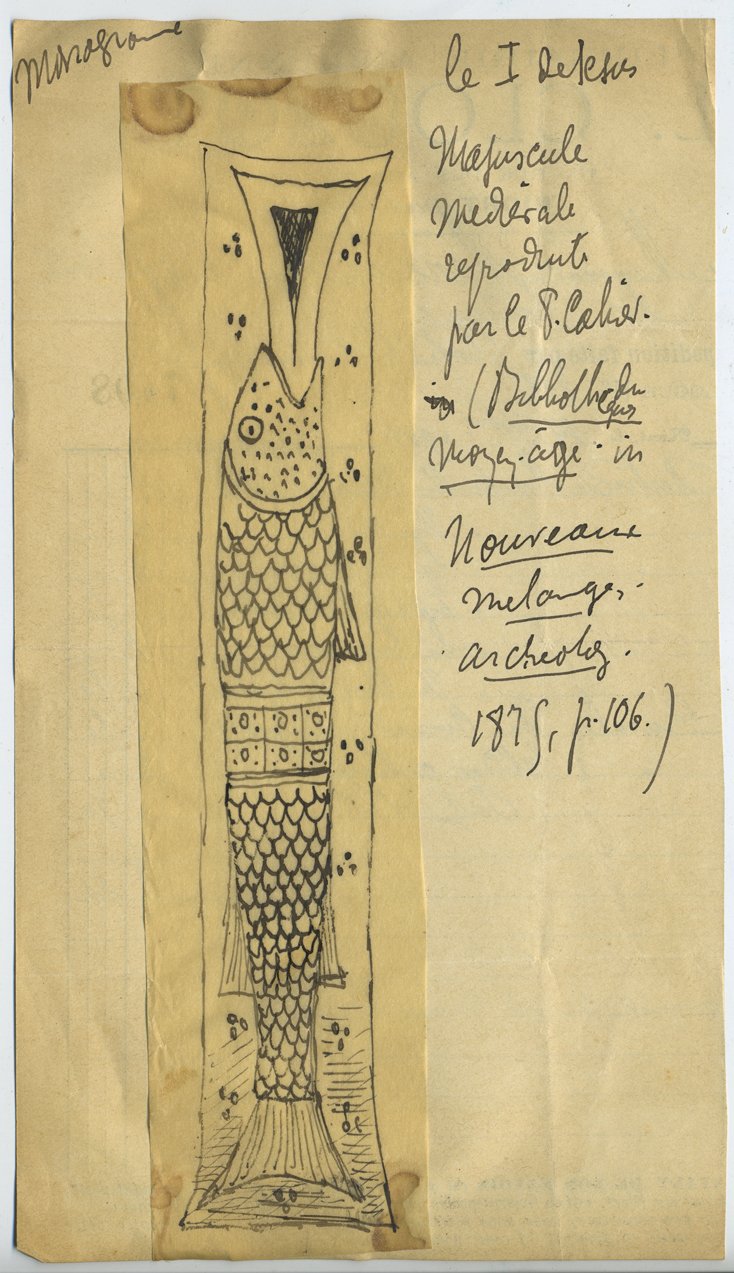 Monogramme
le I de Jésus
Majuscule
Médiévale
reproduite
par le P. Cahier.
in (Bibliothèque du
Moyen-âge in
Nouveaux
mélanges
archéolog.
1875, p. 106.)